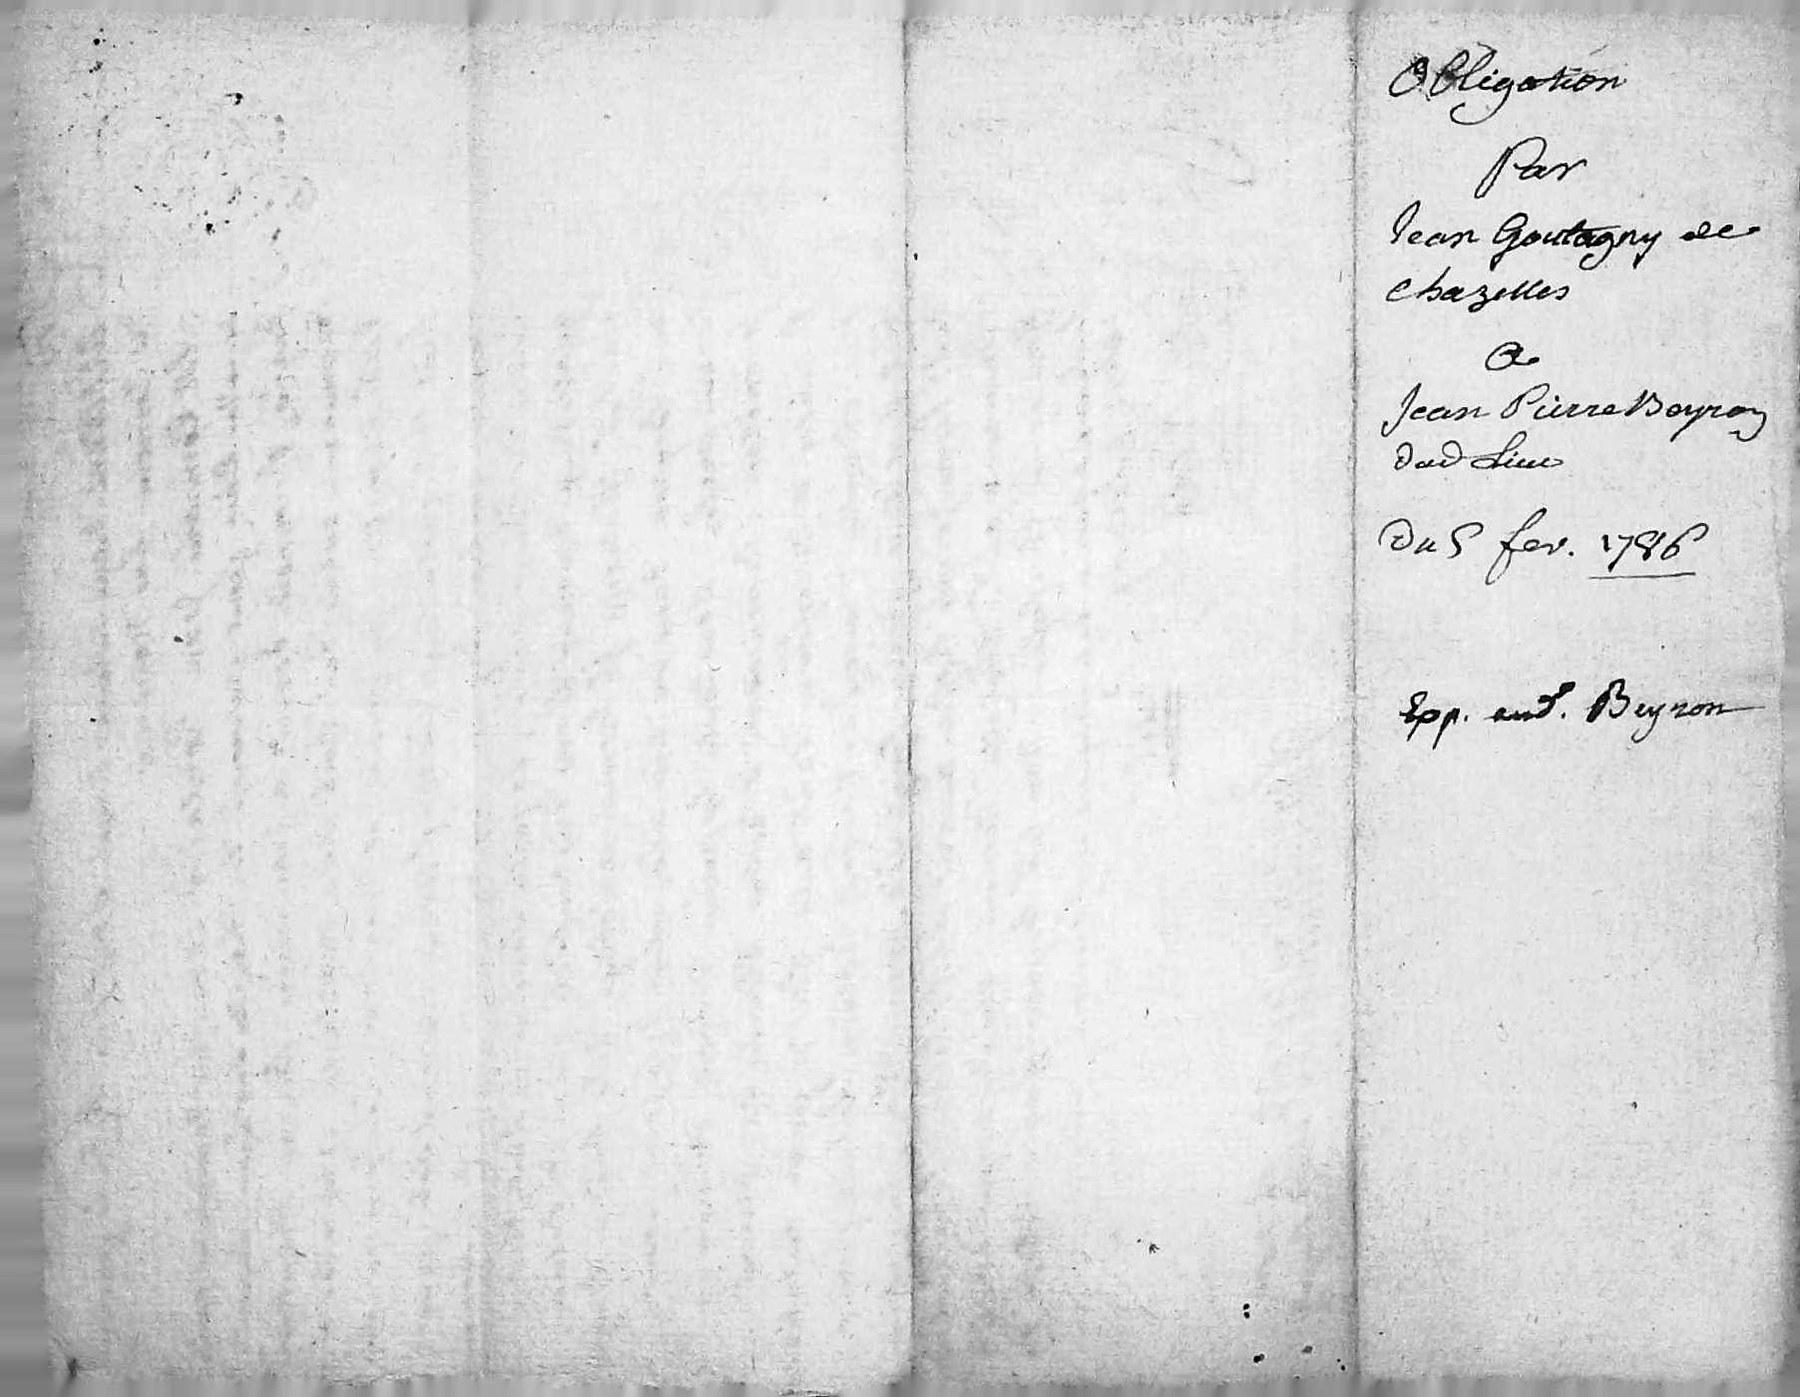 Obligation
Par
Jean Goutagny de
chazelles
A
Jean Pierre Beyron
dud Lieu
Du 5 fev. 1786
Exp. aud. Beyron